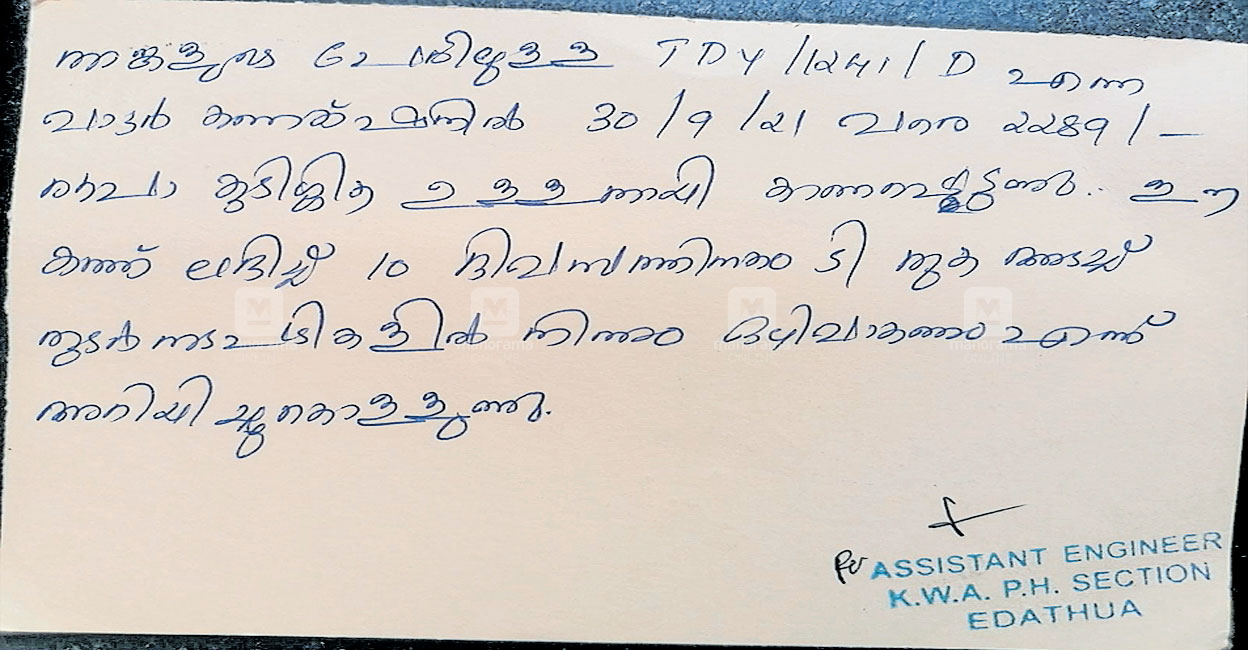 താങ്കളുടെ പേരിലുള്ള TDY/1241/D എന്ന
വാട്ടർ കണക്ഷനിൽ 30/9/21 വരെ 2289/-
രൂപാ കുടിശ്ശിക ഉള്ളതായി കാണപ്പെടുന്നു. ഈ
കത്ത് ലഭിച്ച് 10 ദിവസത്തിനകം ടി തുക അടച്ച്
തുടർ നടപടികളിൽ നിന്നും ഒഴിവാകണം എന്ന്
അറിയിച്ചുകൊള്ളുന്നു.
for ASSISTANT ENGINEER
K.W.A. P.H. SECTION
EDATHUA